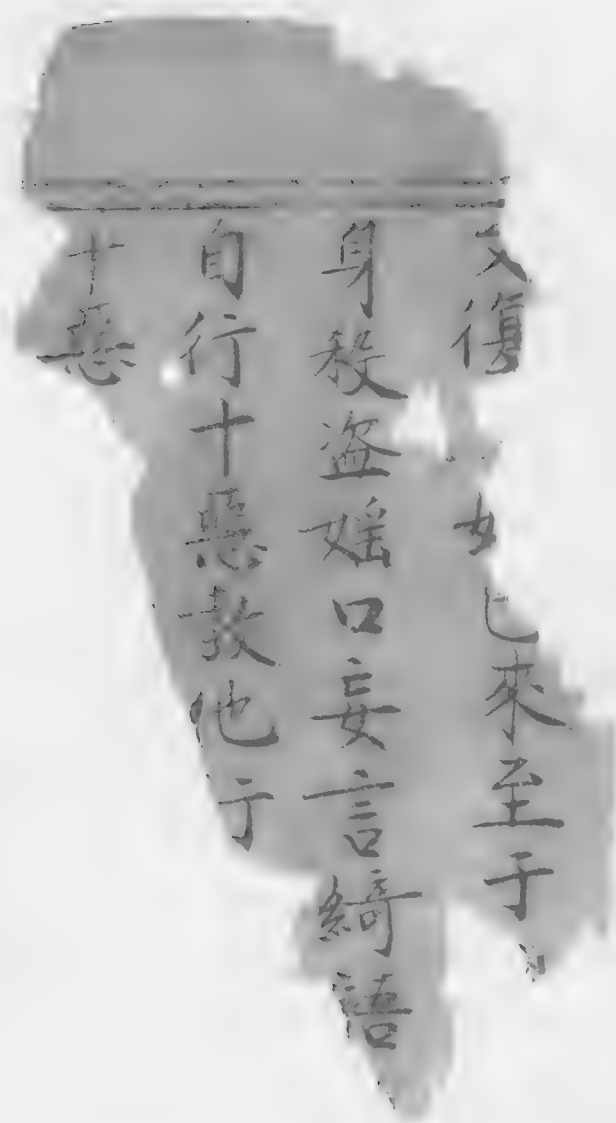 又復始已來至于
身殺盗婬口妄言綺語
自行十惡教他行
十惡